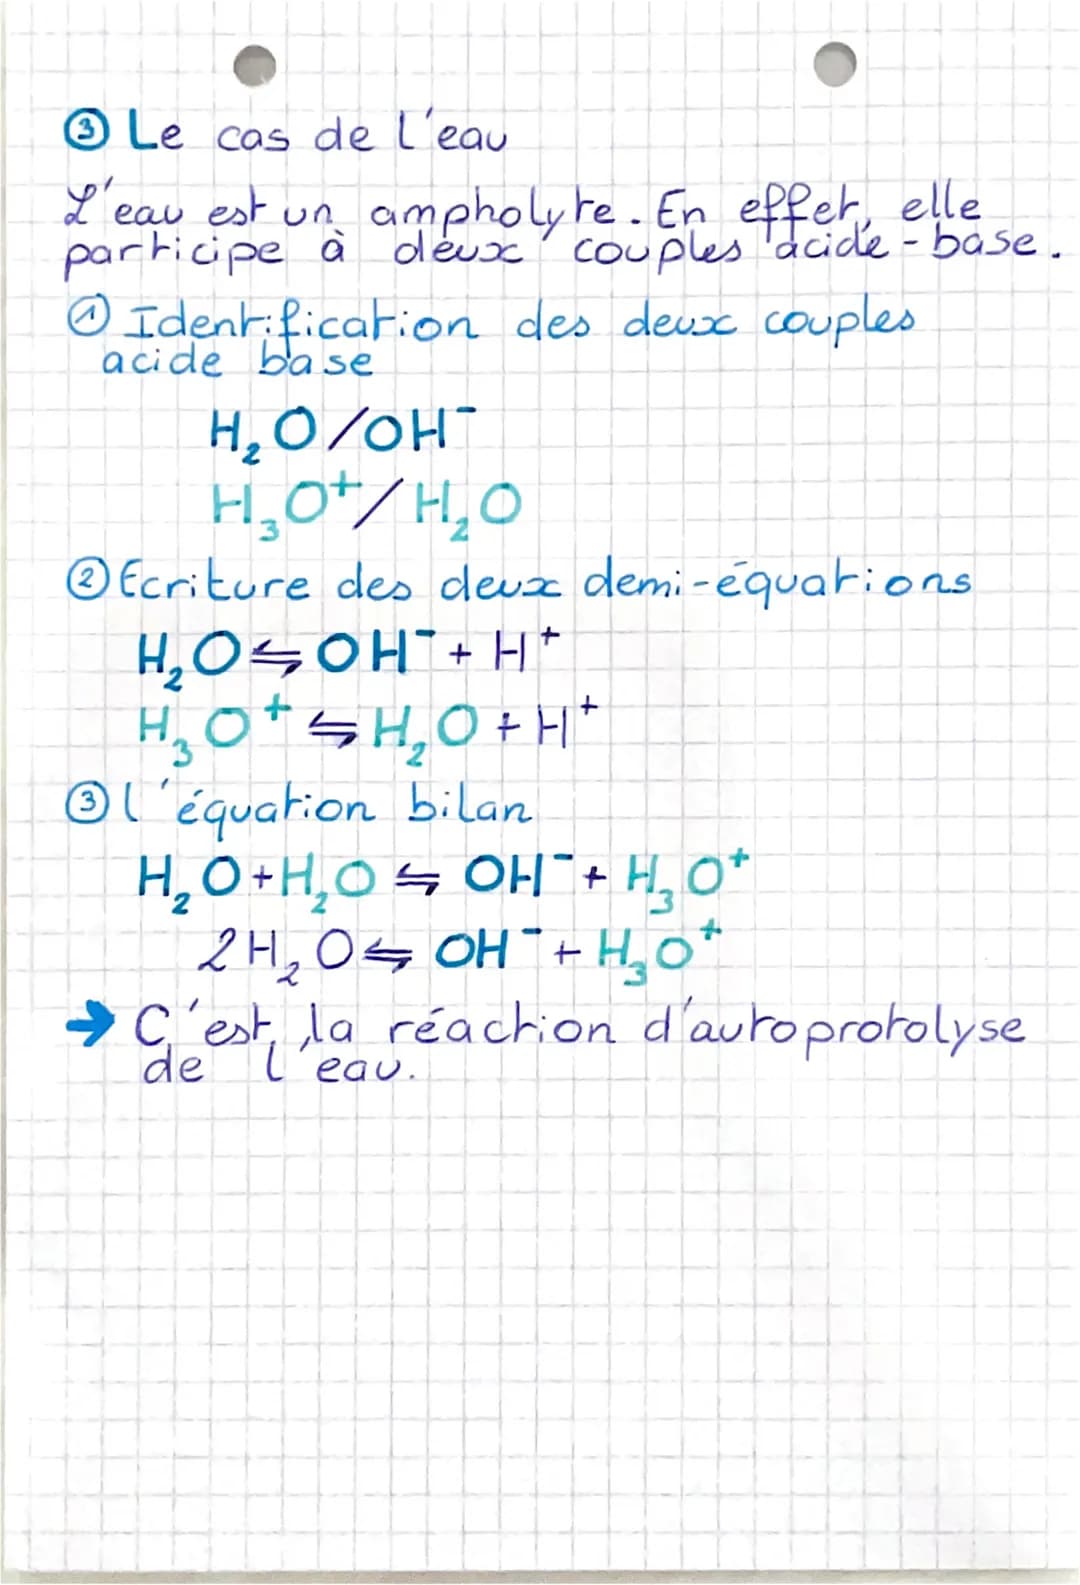 ③ Le cas de l'eau
L'eau est un ampholyte. En effet, elle
participe à deux couples acide-base.
① Identification des deux couples
acide base
H₂O/OH⁻
H₃O⁺/H₂O
② Ecriture des deux demi-équations
H₂O ⇋ OH⁻ + H⁺
H₃O⁺ ⇋ H₂O + H⁺
③ l'équation bilan
H₂O + H₂O ⇋ OH⁻ + H₃O⁺
2H₂O ⇋ OH⁻ + H₃O⁺
→ C'est la réaction d'autoprotolyse
de l'eau.